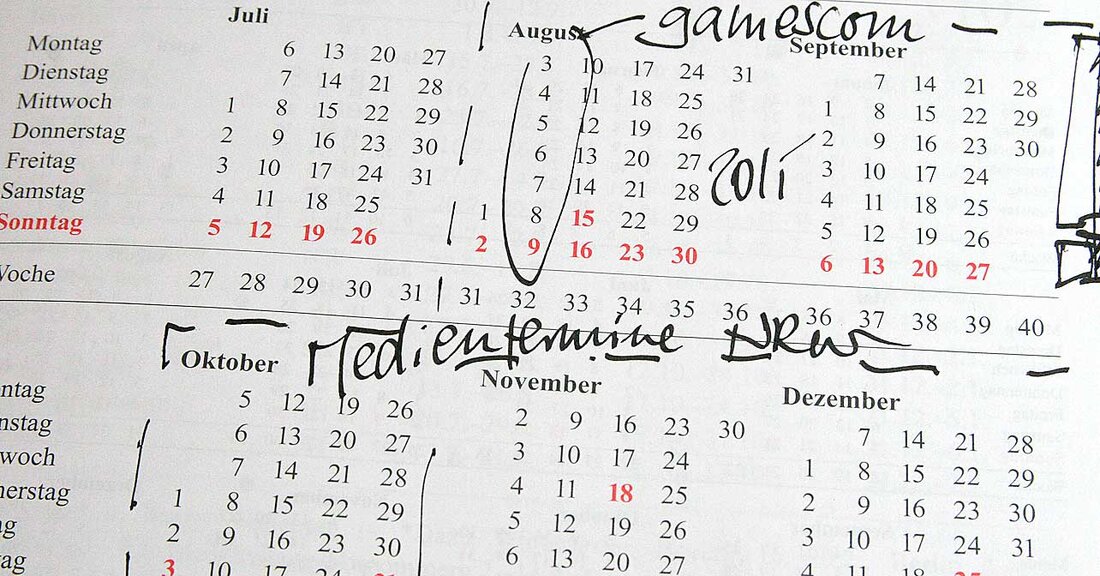 Juli August gamescom September
Montag 6 13 20 27 3 10 17 24 31 7 14 21 28
Dienstag 7 14 21 28 4 11 18 25 1 8 15 22 29
Mittwoch 1 8 15 22 29 5 12 19 26 2 9 16 23 30
Donnerstag 2 9 16 23 30 6 13 20 27 3 10 17 24
Freitag 3 10 17 24 31 7 14 21 28 4 11 18 25
Samstag 4 11 18 25 1 8 15 22 29 5 12 19 26
Sonntag 5 12 19 26 2 9 16 23 30 6 13 20 27
Woche 27 28 29 30 31 31 32 33 34 35 36 36 37 38 39 40
Medientermine NRW
Oktober November Dezember
ntag 5 12 19 26 2 9 16 23 30 7 14 21 28
nstag 6 13 20 27 3 10 17 24 1 8 15 22 29
woch 7 14 21 28 4 11 18 25 2 9 16 23 30
nerstag 1 8 15 22 29 5 12 19 26 3 10 17 24 31
ag 2 9 16 23 30 6 13 20 27 4 11 18 25
tag 3 10 17 24 31